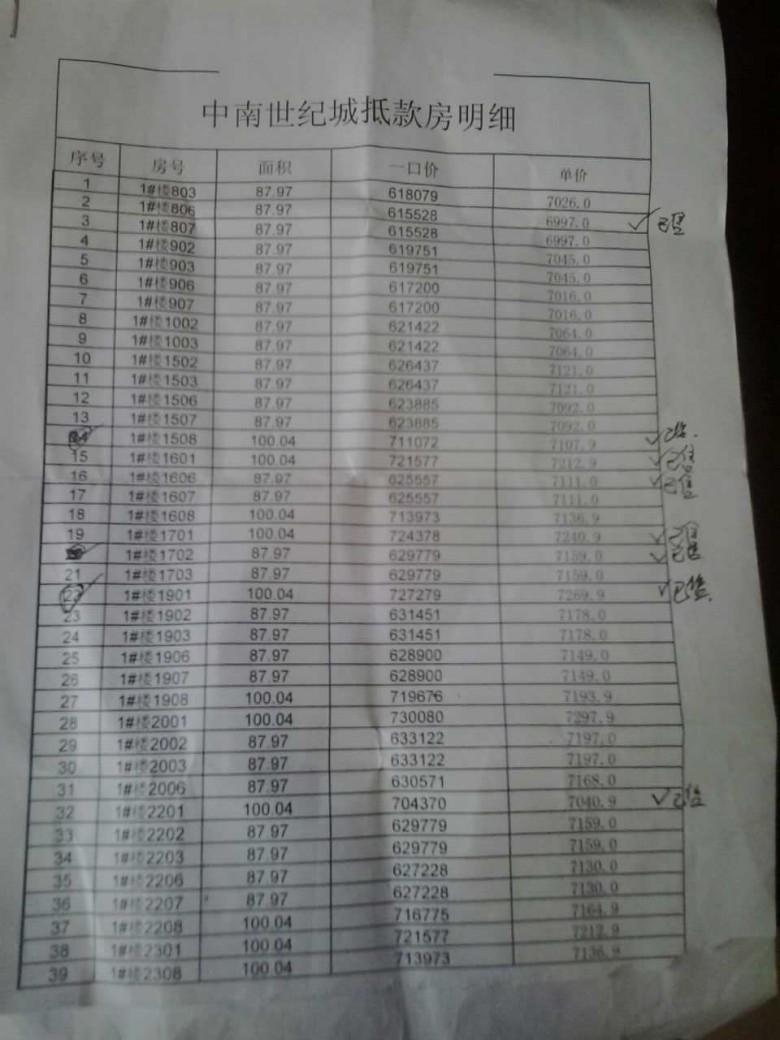 中南世纪城抵款房明细
序号 房号 面积 一口价 单价
1 1#楼803 87.97 618079 7026.0
2 1#楼806 87.97 615528 6997.0 ✓已售
3 1#楼807 87.97 615528 6997.0
4 1#楼902 87.97 619751 7045.0
5 1#楼903 87.97 619751 7045.0
6 1#楼906 87.97 617200 7016.0
7 1#楼907 87.97 617200 7016.0
8 1#楼1002 87.97 621422 7064.0
9 1#楼1003 87.97 621422 7064.0
10 1#楼1502 87.97 626437 7121.0
11 1#楼1503 87.97 626437 7121.0
12 1#楼1506 87.97 623885 7092.0
13 1#楼1507 87.97 623885 7092.0
14 1#楼1508 100.04 711072 7107.9 ✓已售
15 1#楼1601 100.04 721577 7212.9 ✓已售
16 1#楼1606 87.97 625557 7111.0 ✓已售
17 1#楼1607 87.97 625557 7111.0
18 1#楼1608 100.04 713973 7136.9
19 1#楼1701 100.04 724378 7240.9 ✓已售
1#楼1702 87.97 629779 7159.0 ✓已售
21 1#楼1703 87.97 629779 7159.0
22 1#楼1901 100.04 727279 7269.9 ✓已售
23 1#楼1902 87.97 631451 7178.0
24 1#楼1903 87.97 631451 7178.0
25 1#楼1906 87.97 628900 7149.0
26 1#楼1907 87.97 628900 7149.0
27 1#楼1908 100.04 719676 7193.9
28 1#楼2001 100.04 730080 7297.9
29 1#楼2002 87.97 633122 7197.0
30 1#楼2003 87.97 633122 7197.0
31 1#楼2006 87.97 630571 7168.0
32 1#楼2201 100.04 704370 7040.9 ✓已售
33 1#楼2202 87.97 629779 7159.0
34 1#楼2203 87.97 629779 7159.0
35 1#楼2206 87.97 627228 7130.0
36 1#楼2207 87.97 627228 7130.0
37 1#楼2208 100.04 716775 7164.9
38 1#楼2301 100.04 721577 7212.9
39 1#楼2308 100.04 713973 7136.9